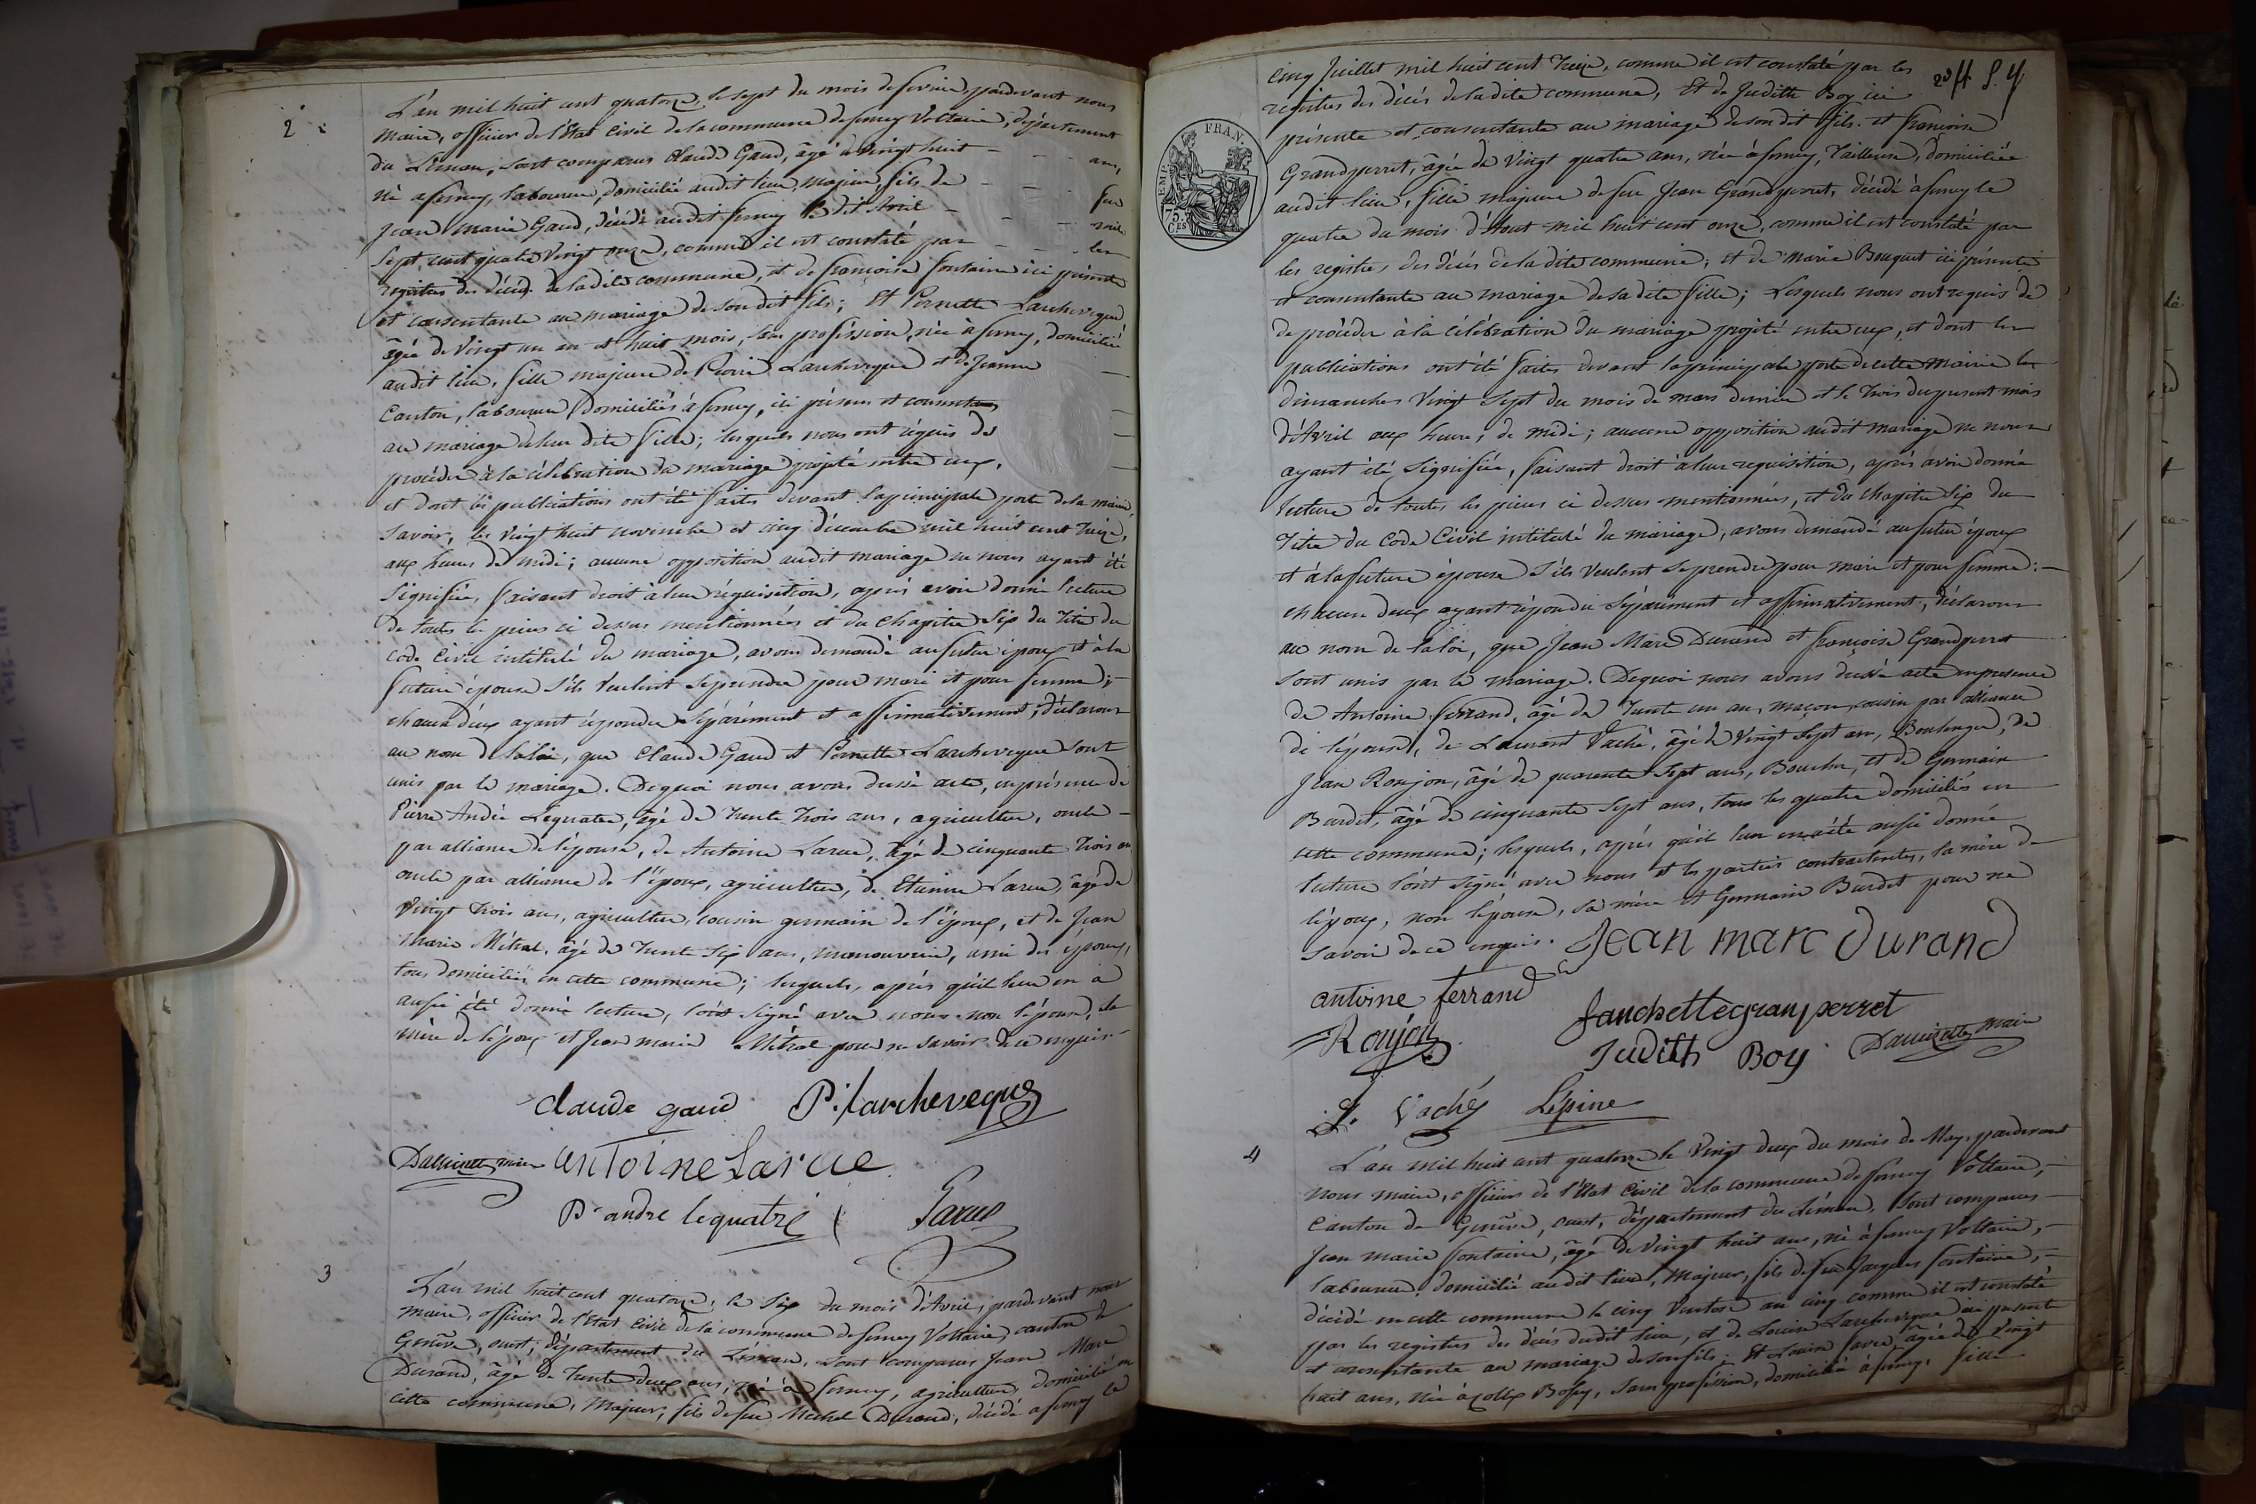 2
L'an mil huit cent quatorze, le sept du mois de fevrier, pardevant nous
Maire, officier de l'Etat Civil de la commune de ferney Voltaire, département
du Léman, sont comparus Claude Gaud, âgé de vingt huit - - - ans,
né a ferney, laboureur, domicilié audit lieu, majeur, fils de - - - feu
Jean Marie Gaud, décédé audit ferney le dit Avril - - - mil
sept cent quatre vingt onze, comme il est constaté par - - - les
registres des décés de la dite commune, et de françoise fontaine ici présente
et consentante au mariage de son dit fils; Et Pernette Larcheveque
âgée de vingt un an et huit mois, sans profession, née à ferney, domiciliée
audit lieu, fille majeure de Pierre Larcheveque et de Jeanne
Canton, laboureur domiciliés à ferney, ici présens et consentans
au mariage de leur dite fille; lesquels nous ont requis de
procéder à la célébration du mariage projeté entre eux,
et dont les publications ont été faites devant la principale porte de la mairie,
Savoir, les vingt huit novembre et cinq décembre mil huit cent treize,
aux heures de midi; aucune opposition audit mariage ne nous ayant été
signifiée, faisant droit à leur réquisition, après avoir donné lecture
de toutes les pieces ci dessus mentionnées et du chapitre six du titre du
code Civil intitulé du mariage, avons demandé au futur époux et à la
future épouse s'ils veulent se prendre pour mari et pour femme;
chacun d'eux ayant répondu séparément et affirmativement, déclarons
au nom de la loi, que Claude Gaud et Pernette Larcheveque sont
unis par le mariage. De quoi nous avons dressé acte, en présence de
Pierre André Lequatre, âgé de trente trois ans, agriculteur, oncle -
par alliance de l'épouse, de Antoine Larue, âgé de cinquante trois an
oncle par alliance de l'époux, agriculteur, de Etienne Larue, âgé de
vingt trois ans, agriculteur, cousin germain de l'époux, et de Jean
Marie Métral, âgé de trente six ans, manouvrier, ami des époux,
tous domiciliés en cette commune; lesquels, après qu'il leur en a
aussi été donné lecture, l'ont signé avec nous non l'épouse, la
mère de l'époux et Jean marie Métral pour ne savoir de ce enquis.
Claude gaud P. Larcheveque
maire Antoine Larue
P. andre lequatre Larue
3
L'an mil huit cent quatorze, le six du mois d'Avril, pardevant nous
maire, officier de l'Etat Civil de la commune de ferney Voltaire, canton de
Genêve, ouest, département du Léman, sont comparus Jean Marc
Durand, âgé de trente deux ans, né à ferney, agriculteur, domicilié en
cette commune, Majeur, fils de feu Michel Durand, décédé a ferney le
cinq Juillet mil huit cent treize, comme il est constaté par les
registres des décés de la dite commune, Et de Judith Boy ici
présente et consentante au mariage de son dit fils. et françoise
Grandperret, âgée de vingt quatre ans, née à ferney, Tailleuse, domiciliée
audit lieu, fille majeure de feu Jean Grandperret, décédé à ferney le
quatre du mois d'Aout mil huit cent onze, comme il est constaté par
les registres des décés de la dite commune; et de Marie Bouquet ici présente
et consentante au mariage de sa dite fille; Lesquels nous ont requis de
de procéder à la célébration du mariage projeté entre eux, et dont les
publications ont été faites devant la principale porte de cette Mairie les
dimanches vingt sept du mois de mars dernier et le trois du present mois
d'Avril aux heures de midi; aucune opposition audit mariage ne nous
ayant été signifiée, faisant droit à leur requisition, après avoir donné
lecture de toutes les pieces ci dessus mentionnées, et du chapitre six du
Titre du Code Civil intitulé du mariage, avons demandé au futur époux
et à la future épouse s'ils veulent se prendre pour mari et pour femme: -
chacun deux ayant répondu séparément et affirmativement, déclarons
au nom de la loi, que Jean Marc Durand et françoise Grandperret
sont unis par le mariage. De quoi nous avons dressé acte en presence
de Antoine ferrand, âgé de trente un an, maçon, cousin par alliance
de l'épouse, de Laurent Vaché, âgé de vingt sept ans, Boulanger, de
Jean Roujon, âgé de quarante sept ans, Boucher, et de Germain
Burdet, âgé de cinquante sept ans, tous les quatre domiciliés en
cette commune; lesquels, après qu'il leur en a été aussi donné
lecture l'ont signé avec nous et les parties contractantes, la mère de
l'époux, non l'épouse, sa mère et Germain Burdet pour ne
savoir de ce enquis. Jean marc durand
antoine ferrand
fanchette granperret
Roujon Judith Boy maire
L. Vaché Lépine
EMP. FRAN.
75 Ces
4
L'an mil huit cent quatorze le vingt deux du mois de May, pardevant
nous maire, officier de l'Etat Civil de la commune de ferney Voltaire,
Canton de Genêve, ouest, département du Léman, sont comparus
Jean marie fontaine, âgé de vingt huit ans, né à ferney Voltaire,
laboureur, domicilié audit lieu, Majeur, fils de feu Jacques fontaine,
décédé en cette commune le cinq Ventose an cinq comme il est constaté
par les registres des décés dudit lieu, et de Louise Larcheveque ici présente
et consentante au mariage de son fils. Et Louise favre âgée de vingt
huit ans, née à Collex Bossy, sans profession, domiciliée à ferney, fille